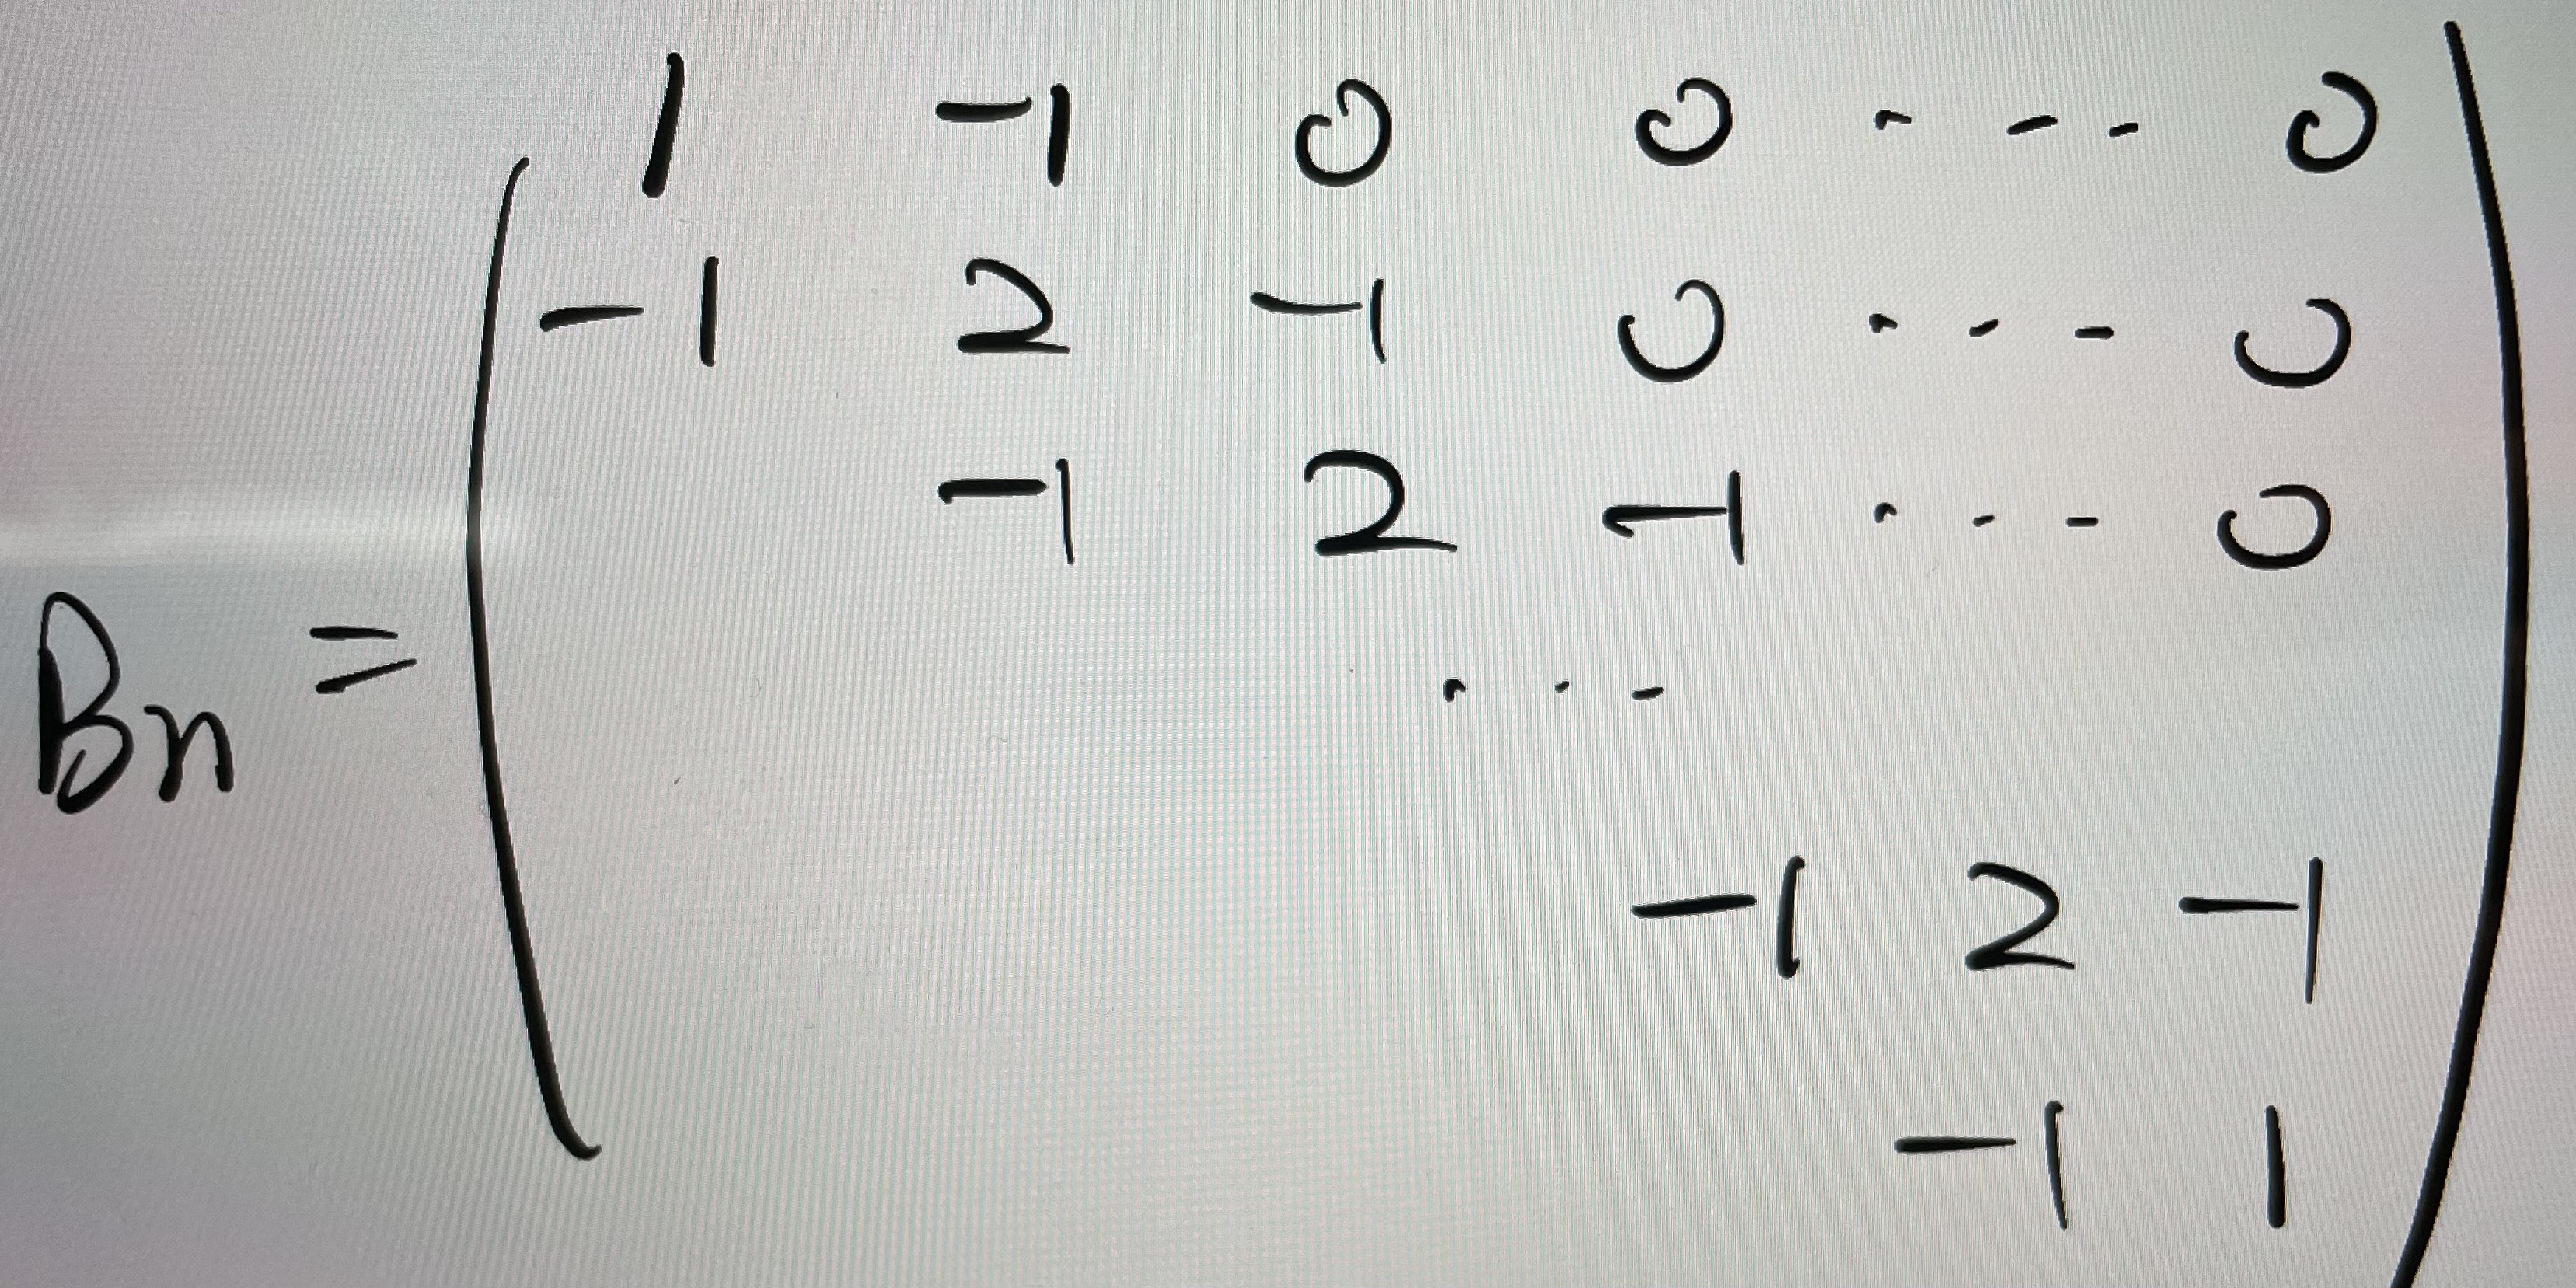 1 -1 0 0 --- 0
-1 2 -1 0 --- 0
-1 2 -1 --- 0
Bn =
---
-1 2 -1
-1 1